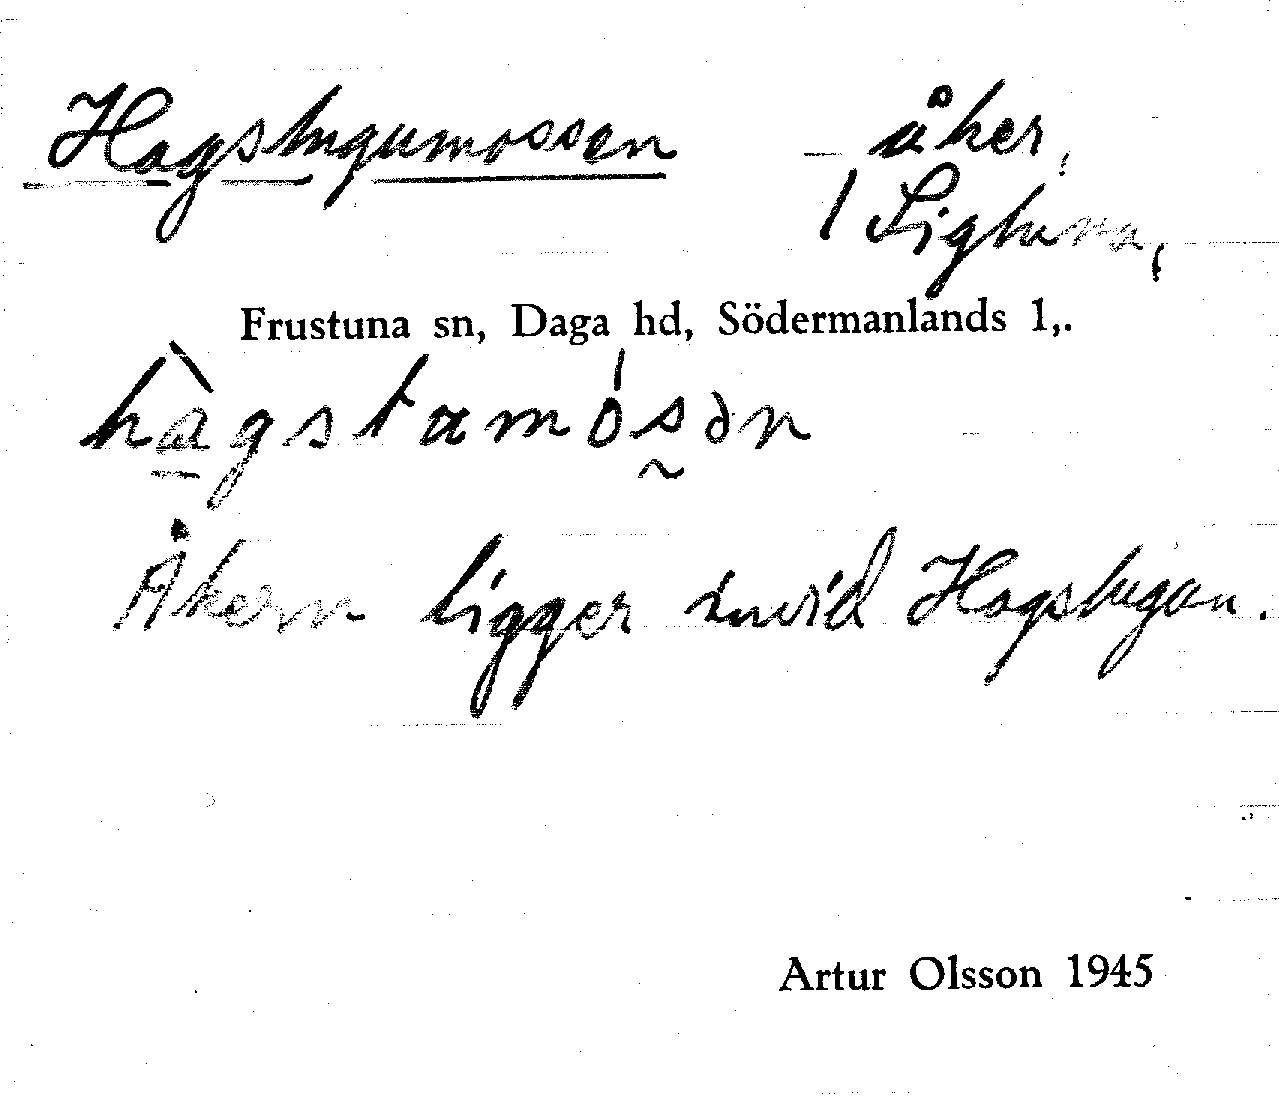 Hagstugumossen åker,
/ Sigtuna,
Frustuna sn, Daga hd, Södermanlands l,.
hàgstamósən
Åkern ligger invid Hagstugan.
Artur Olsson 1945